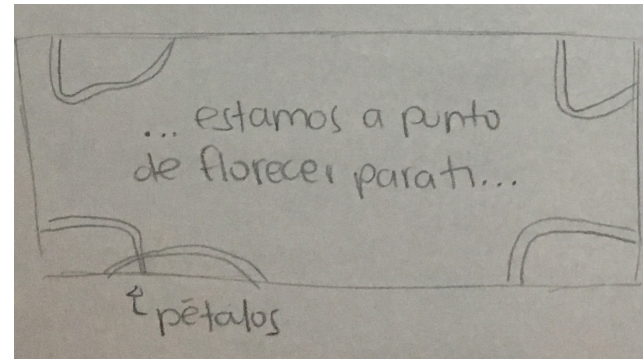 ... estamos a punto
de florecer para ti...
pétalos